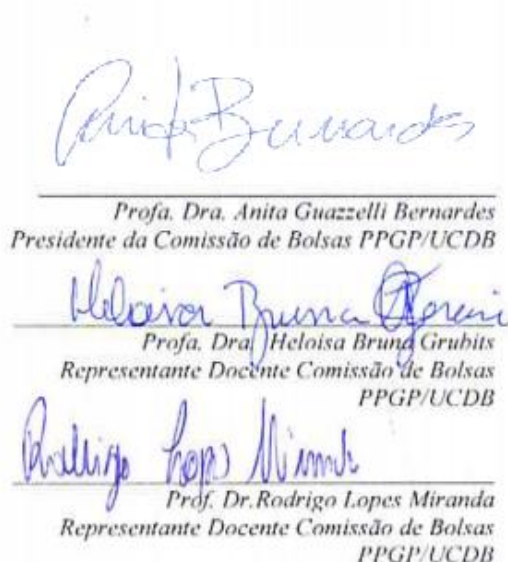 Anita Bernardes
Profa. Dra. Anita Guazzelli Bernardes
Presidente da Comissão de Bolsas PPGP/UCDB
Heloisa Bruna
Profa. Dra. Heloisa Bruna Grubits
Representante Docente Comissão de Bolsas
PPGP/UCDB
Rodrigo Lopes Miranda
Prof. Dr.Rodrigo Lopes Miranda
Representante Docente Comissão de Bolsas
PPGP/UCDB